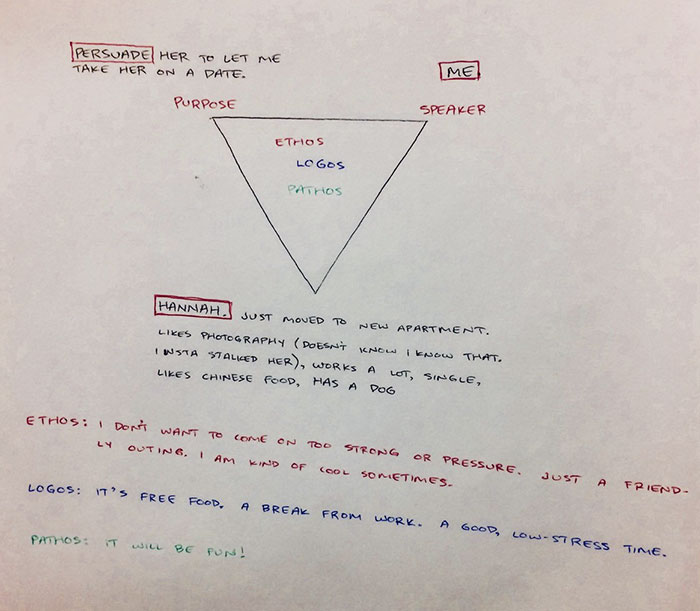 PERSUADE HER TO LET ME
TAKE HER ON A DATE.
ME
PURPOSE
SPEAKER
ETHOS
LOGOS
PATHOS
HANNAH. JUST MOVED TO NEW APARTMENT.
LIKES PHOTOGRAPHY (DOESN'T KNOW I KNOW THAT.
I INSTA STALKED HER), WORKS A LOT, SINGLE,
LIKES CHINESE FOOD, HAS A DOG
ETHOS: I DON'T WANT TO COME ON TOO STRONG OR PRESSURE. JUST A FRIEND-
LY OUTING. I AM KIND OF COOL SOMETIMES.
LOGOS: IT'S FREE FOOD. A BREAK FROM WORK. A GOOD, LOW-STRESS TIME.
PATHOS: IT WILL BE FUN!